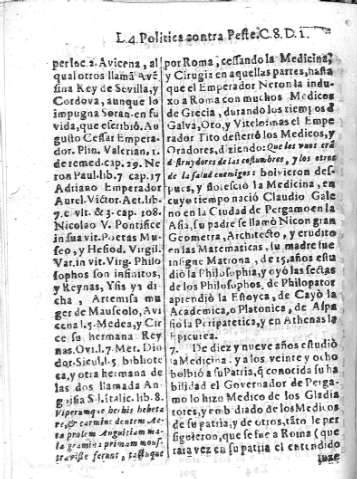 L.4. Politica contra Peste. C.8. D.1.
per loc. 2. Avicena, al
qual otros llamã Avẽ
sina Rey de Sevilla, y
Cordova, aunque lo
impugna Soran. en su
vida, que escribió. Au
gusto Cessar Empera-
dor. Plin. Valerian. 1.
de remed. cap. 29. Ne
ron Paul. lib. 7 cap. 17
Adriano Emperador
Aurel. Victor. Aet. lib.
7. c. vlt. & 3. cap. 108.
Nicolao V. Pontifice
in sua vit. Poetas Mu
seo, y Hesiod. Virgil.
Var. in vit. Virg. Philo
sophos son infinitos,
y Reynas, Ysis ya di
cha, Artemisa mu
ger de Mauseolo, Avi
cena l. 5. Medea, y Cir
ce su hermana Rey
nas. Ovi. l. 7. Met. Dio
dor. Sicul. l. 5. bibliote
ca, y otra hermana de
las dos llamada An
guisia S. Italic. lib. 8.
Viperumque herbis hebeta
re, & carmine dentem Ae-
ta prolem Anguitiam ma-
la gramina primam mons-
travisse ferunt, tactuque
por Roma, cessando la Medicina,
y Cirugia en aquellas partes, hasta
que el Emperador Neron la indu-
xo a Roma con muchos Medicos
de Grecia, durando los tiempos d
Galva, Oto, y Vitelo: mas el Empe
rador Tito desterró los Medicos, y
Oradores, diziendo: Que los unos erã
destruydores de las costumbres, y los otros
de la salud enemigos: bolvieron des-
pues, y floresció la Medicina, en
cuyo tiempo nació Claudio Gale
no en la Ciudad de Pergamo en la
Asia, su padre se llamò Nicon gran
Geometra, Architecto, y erudito
en las Matematicas, su madre fue
insigne Matrona, de 15. años estu
diò la Philosophia, y oyó las sectas
de los Philosophos, de Philopator
aprendiò la Estoyca, de Cayò la
Academica, o Platonica, de Aspa
sio la Peripatetica, y en Athenas la
Epicurea.
7. De diez y nueve años estudiò
la Medicina: y a los veinte y ocho
bolbiò a su Patria, q̃ conocida su ha
bilidad el Governador de Perga-
mo lo hizo Medico de los Gladia
tores, y embidiado de los Medicos
de su patria, y de otros, tãto le per
siguieron, que se fue a Roma (que
rara vez en su patria el entendido
luze